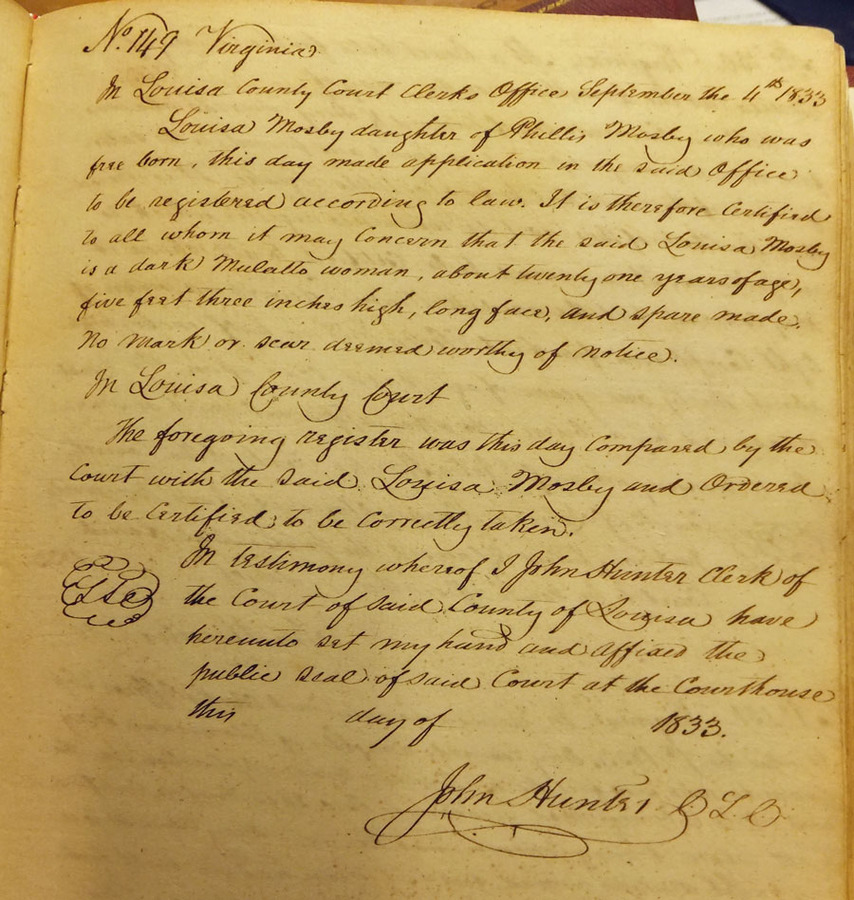 No. 149 Virginia
In Louisa County Court Clerks Office September the 4th 1833
Louisa Mosby daughter of Phillis Mosby who was
free born, this day made application in the said Office
to be registered according to law. It is therefore Certified
to all whom it may Concern that the said Louisa Mosby
is a dark Mulatto woman, about twenty one years of age,
five feet three inches high, long face, and spare made.
No mark or scar deemed worthy of notice.
In Louisa County Court
The foregoing register was this day Compared by the
Court with the said Louisa Mosby and Ordered
to be Certified to be Correctly taken.
In testimony whereof I John Hunter Clerk of
the Court of said County of Louisa have
hereunto set my hand and affixed the
public seal of said Court at the Courthouse
this day of 1833.
John Hunter C L C